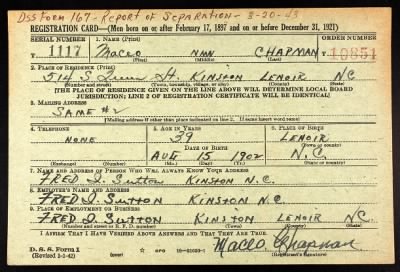 DSS Form 167 - Report of Separation - 3-20-43
REGISTRATION CARD—(Men born on or after February 17, 1897 and on or before December 31, 1921)
SERIAL NUMBER 1. NAME (Print) ORDER NUMBER
U 1117 Maceo nmn CHAPMAN 10851
(First) (Middle) (Last)
2. PLACE OF RESIDENCE (Print)
514 S St. KINSTON LENOIR NC
(Number and street) (Town, township, village, or city) (County) (State)
[THE PLACE OF RESIDENCE GIVEN ON THE LINE ABOVE WILL DETERMINE LOCAL BOARD
JURISDICTION; LINE 2 OF REGISTRATION CERTIFICATE WILL BE IDENTICAL]
3. MAILING ADDRESS
SAME #2
[Mailing address if other than place indicated on line 2. If same insert word same]
4. TELEPHONE 5. AGE IN YEARS 6. PLACE OF BIRTH
NONE 39 LENOIR
DATE OF BIRTH (Town or county)
AUG 15 1902 N.C.
(Exchange) (Number) (Mo.) (Day) (Yr.) (State or country)
7. NAME AND ADDRESS OF PERSON WHO WILL ALWAYS KNOW YOUR ADDRESS
FRED I. SUTTON KINSTON N.C.
8. EMPLOYER'S NAME AND ADDRESS
FRED I. SUTTON KINSTON N.C.
9. PLACE OF EMPLOYMENT OR BUSINESS
FRED I. SUTTON KINSTON LENOIR NC.
(Number and street or R. F. D. number) (Town) (County) (State)
I AFFIRM THAT I HAVE VERIFIED ABOVE ANSWERS AND THAT THEY ARE TRUE.
D. S. S. Form 1 GPO Maceo Chapman
(Revised 1-1-42) (Registrant's signature)